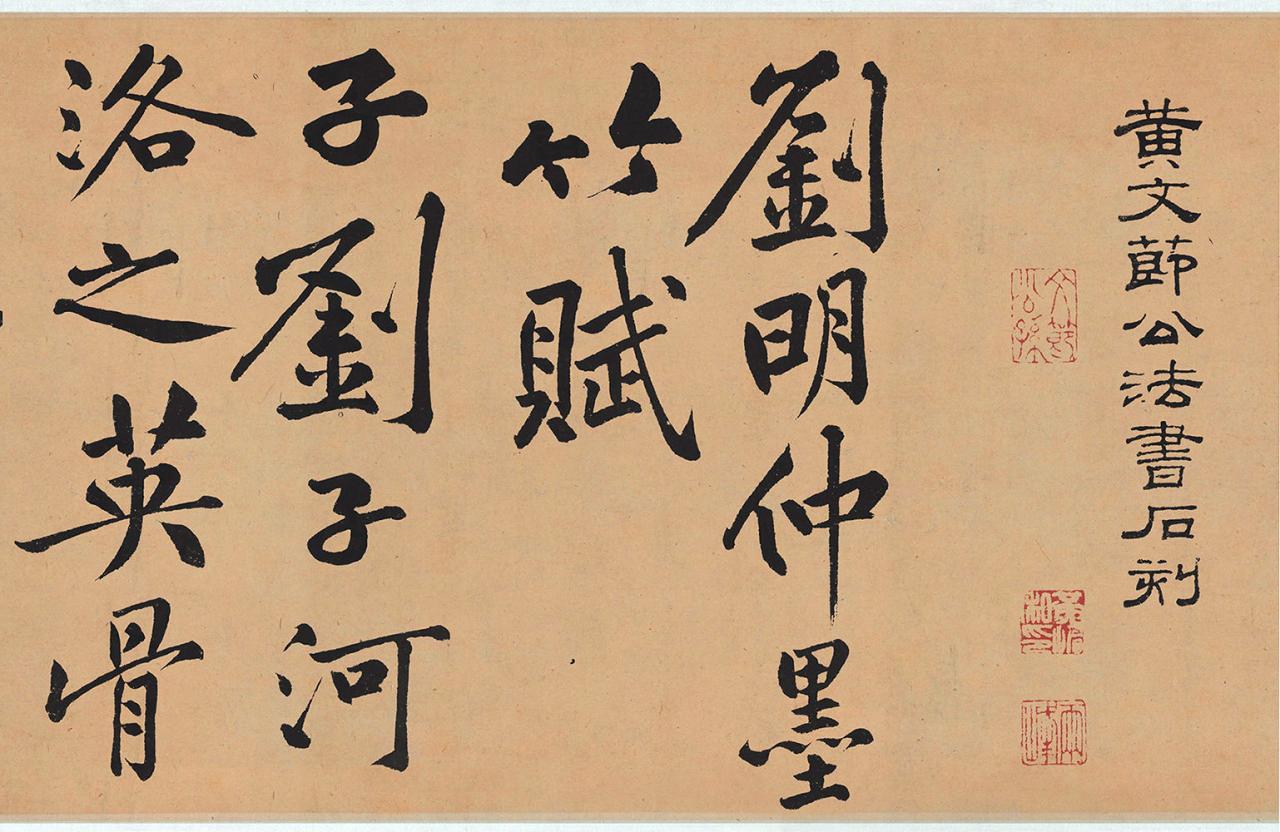 黄文節公法書石刻
劉明仲墨
竹賦
子劉子河
洛之英骨
文節公孫